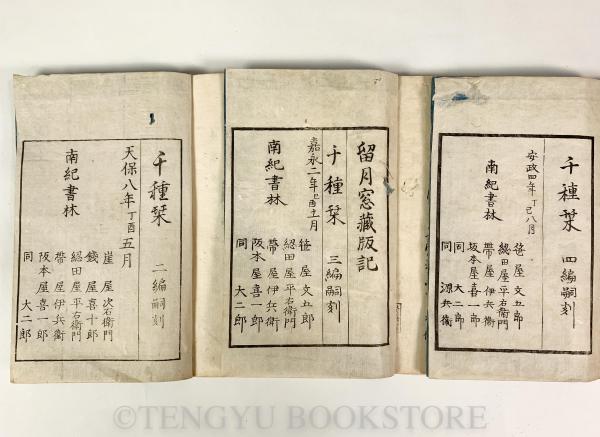 千種栞 二編嗣刻
天保八年丁酉五月
南紀書林
崖屋次右衛門
錢屋喜十郎
緫田屋平右衛門
帶屋伊兵衛
阪本屋喜一郎
同 大二郎
留月窓藏版記
千種栞 三編嗣刻
嘉永二年己酉十月
南紀書林
笹屋文五郎
緫田屋平右衛門
帶屋伊兵衛
阪本屋喜一郎
同 大二郎
千種栞 四編嗣刻
安政四年丁巳八月
南紀書林
笹屋文五郎
緫田屋平右衛門
帶屋伊兵衛
坂本屋喜一郎
同 大二郎
同 源兵衛
©TENGYU BOOKSTORE